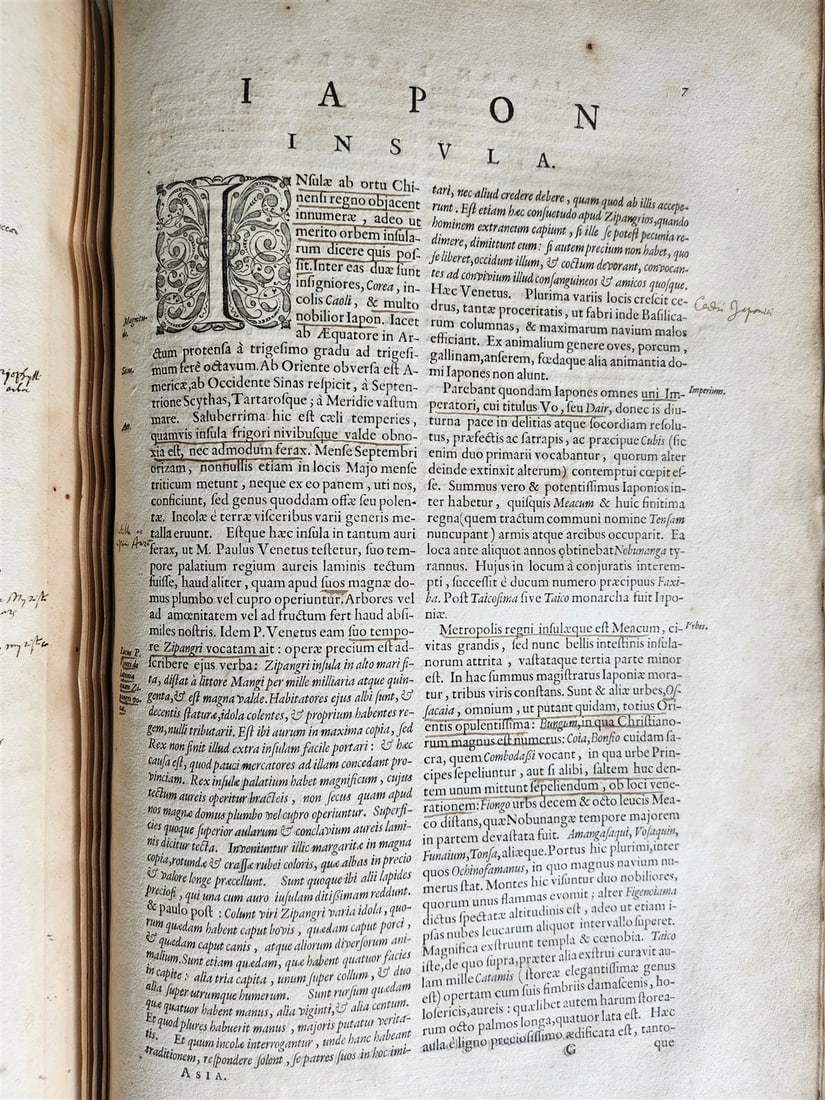 7
IAPON
INSVLA.
INsulæ ab ortu Chi-
nensi regno objacent
innumeræ, adeo ut
merito orbem insula-
rum dicere quis pos-
sit. Inter eas duæ sunt
insigniores, Corea, in-
colis Caoli, & multo
nobilior Iapon. Iacet
ab Æquatore in Ar-
ctum protensa à trigesimo gradu ad trigesi-
mum ferè octavum. Ab Oriente obversa est A-
mericæ, ab Occidente Sinas respicit, à Septen-
trione Scythas, Tartarosque; à Meridie vastum
mare. Saluberrima hic est cæli temperies,
quamvis insula frigori nivibusque valde obno-
xia est, nec admodum ferax. Mense Septembri
orizam, nonnullis etiam in locis Majo mense
triticum metunt, neque ex eo panem, uti nos,
conficiunt, sed genus quoddam offæ seu polen-
tæ. Incolæ è terræ visceribus varii generis me-
talla eruunt. Estque hæc insula in tantum auri
ferax, ut M. Paulus Venetus testetur, suo tem-
pore palatium regium aureis laminis tectum
fuisse, haud aliter, quam apud suos magnæ do-
mus plumbo vel cupro operiuntur. Arbores vel
ad amœnitatem vel ad fructum fert haud absi-
miles nostris. Idem P. Venetus eam suo tempo-
re Zipangri vocatam ait: operæ precium est ad-
scribere ejus verba: Zipangri insula in alto mari si-
ta, distat à littore Mangi per mille milliaria atque quin-
genta, & est magna valde. Habitatores ejus albi sunt, &
decentis staturæ, idola colentes, & proprium habentes re-
gem, nulli tributarii. Est ibi aurum in maxima copia, sed
Rex non sinit illud extra insulam facile portari: & hæc
causa est, quod pauci mercatores ad illam concedant pro-
vinciam. Rex insulæ palatium habet magnificum, cujus
tectum aureis operitur bracteis, non secus quam apud
nos magnæ domus plumbo vel cupro operiuntur. Superfi-
cies quoque superior aularum & conclavium aureis lami-
nis dicitur tecta. Inveniuntur illic margaritæ in magna
copia, rotundæ & crassæ rubei coloris, quæ albas in precio
& valore longe præcellunt. Sunt quoque ibi alii lapides
preciosi, qui una cum auro insulam ditissimam reddunt.
& paulo post: Colunt viri Zipangri varia idola, quo-
rum quædam habent caput bovis, quædam caput porci,
& quædam caput canis, atque aliorum diversorum ani-
malium. Sunt etiam quædam, quæ habent quatuor facies
in capite: alia tria capita, unum super collum, & duo
alia super utrumque humerum. Sunt rursum quædam
quæ quatuor habent manus, alia viginti, & alia centum.
Et quod plures habuerit manus, majoris putatur verita-
tis. Et quum incolæ interrogantur, unde hanc habeant
traditionem, respondere solent, se patres suos in hoc imi-
ASIA.
tari, nec aliud credere debere, quam quod ab illis accepe-
runt. Est etiam hæc consuetudo apud Zipangrios, quando
hominem extraneum capiunt, si ille se potest pecunia re-
dimere, dimittunt eum: si autem precium non habet, quo
se liberet, occidunt illum, & coctum devorant, convocan-
tes ad convivium illud consanguineos & amicos quosque.
Hæc Venetus. Plurima variis locis crescit ce-
drus, tantæ proceritatis, ut fabri inde Basilica-
rum columnas, & maximarum navium malos
efficiant. Ex animalium genere oves, porcum,
gallinam, anserem, fœdaque alia animantia do-
mi Iapones non alunt.
Parebant quondam Iapones omnes uni Im-
peratori, cui titulus Vo, seu Dair, donec is diu-
turna pace in delitias atque socordiam resolu-
tus, præfectis ac satrapis, ac præcipue Cubis (sic
enim duo primarii vocabantur, quorum alter
deinde extinxit alterum) contemptui cœpit es-
se. Summus vero & potentissimus Iaponios in-
ter habetur, quisquis Meacum & huic finitima
regna (quem tractum communi nomine Tensam
nuncupant) armis atque arcibus occuparit. Ea
loca ante aliquot annos obtinebat Nobunanga ty-
rannus. Hujus in locum à conjuratis interem-
pti, successit è ducum numero præcipuus Faxi-
ba. Post Taicosima sive Taico monarcha fuit Iapo-
niæ.
Metropolis regni insulæque est Meacum, ci-
vitas grandis, sed nunc bellis intestinis insula-
norum attrita, vastataque tertia parte minor
est. In hac summus magistratus Iaponiæ mora-
tur, tribus viris constans. Sunt & aliæ urbes, Os-
sacaia, omnium, ut putant quidam, totius Ori-
entis opulentissima: Bungum, in qua Christiano-
rum magnus est numerus: Coia, Bonsio cuidam sa-
cra, quem Combodassi vocant, in qua urbe Prin-
cipes sepeliuntur, aut si alibi, saltem huc den-
tem unum mittunt sepeliendum, ob loci vene-
rationem: Fiongo urbs decem & octo leucis Mea-
co distans, quæ Nobunangæ tempore majorem
in partem devastata fuit. Amangasaqui, Vosaquin,
Funaium, Tonsa, aliæque. Portus hic plurimi, inter
quos Ochinofamanus, in quo magnus navium nu-
merus stat. Montes hic visuntur duo nobiliores,
quorum unus flammas evomit; alter Figenoiama
dictus spectatæ altitudinis est, adeo ut etiam i-
psas nubes leucarum aliquot intervallo superet.
Magnifica exstruunt templa & cœnobia. Taico
iste, de quo supra, præter alia exstrui curavit au-
lam mille Catamis (storeæ elegantissimæ genus
est) opertam cum suis fimbriis damascenis, ho-
losericis, aureis: quælibet autem harum storea-
rum octo palmos longa, quatuor lata est. Hæc
aula è ligno preciosissimo ædificata est, tanto-
G
que
Imperium.
Urbes.